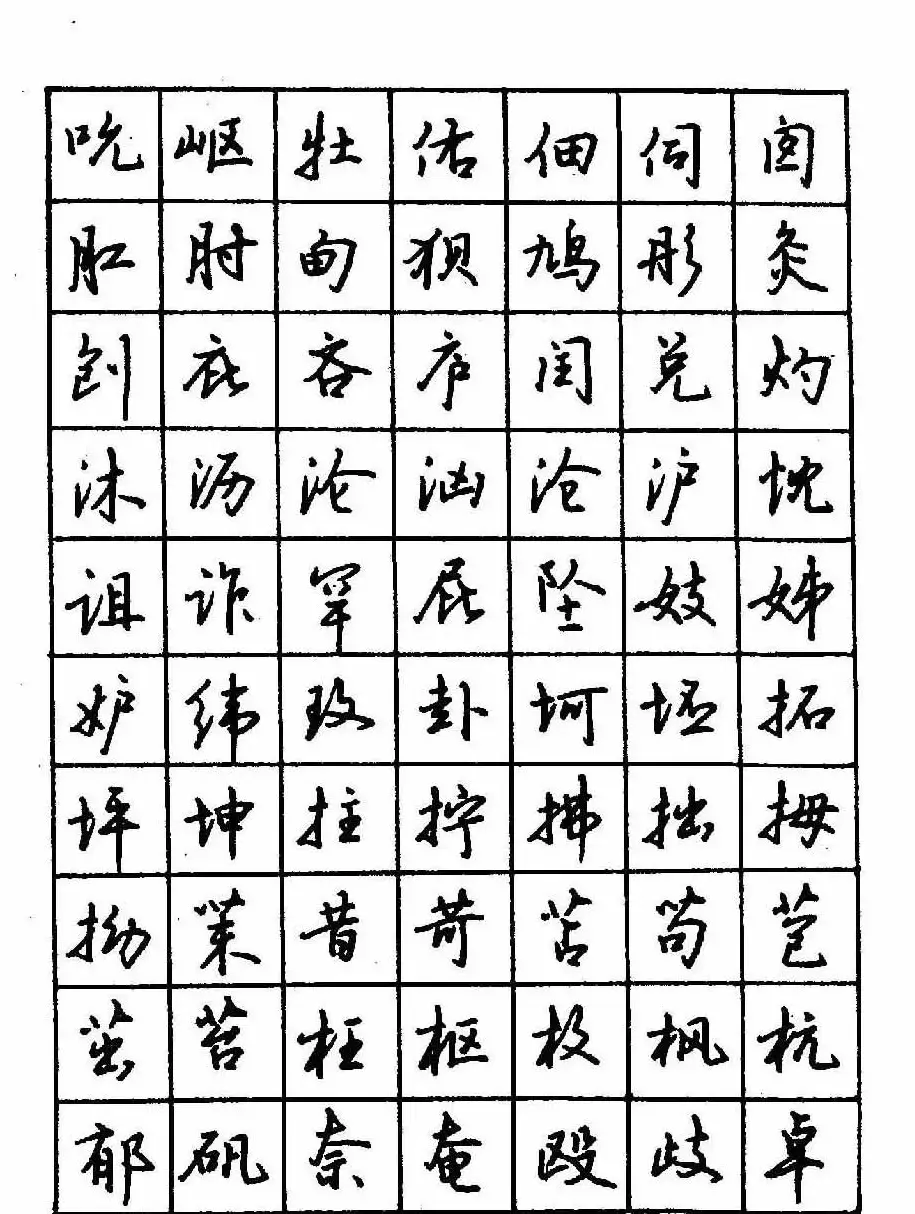 吮 岖 牡 佑 佃 伺 囱
肛 肘 甸 狈 鸠 彤 灸
刨 庇 吝 庐 闰 兑 灼
沐 沥 沦 汹 沧 沪 忱
诅 诈 罕 屁 坠 妓 姊
妒 纬 玫 卦 坷 坯 拓
坪 坤 拄 拧 拂 拙 拇
拗 茉 昔 苛 苫 苟 苞
茁 苔 枉 枢 枚 枫 杭
郁 矾 奈 奄 殴 歧 卓